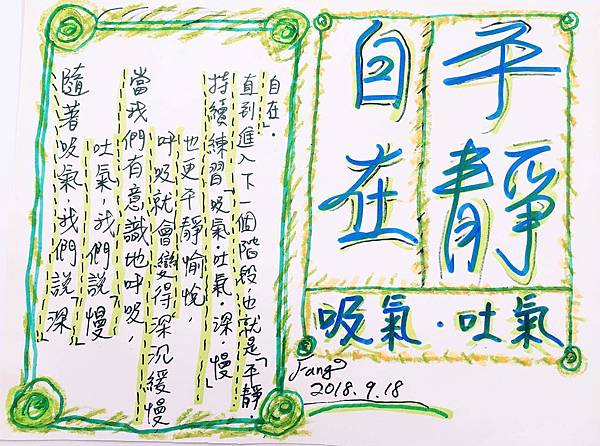 平靜
自在
吸氣·吐氣
Fang
2018.9.18
隨著吸氣,我們說「深」
吐氣,我們說「慢」
當我們有意識地呼吸,
呼吸就會變得深沉緩慢
也更平靜愉悅,
持續練習「吸氣·吐氣 深·慢」
直到進入下一個階段也就是「平靜·
自在」.